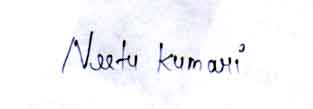 Neetu kumari